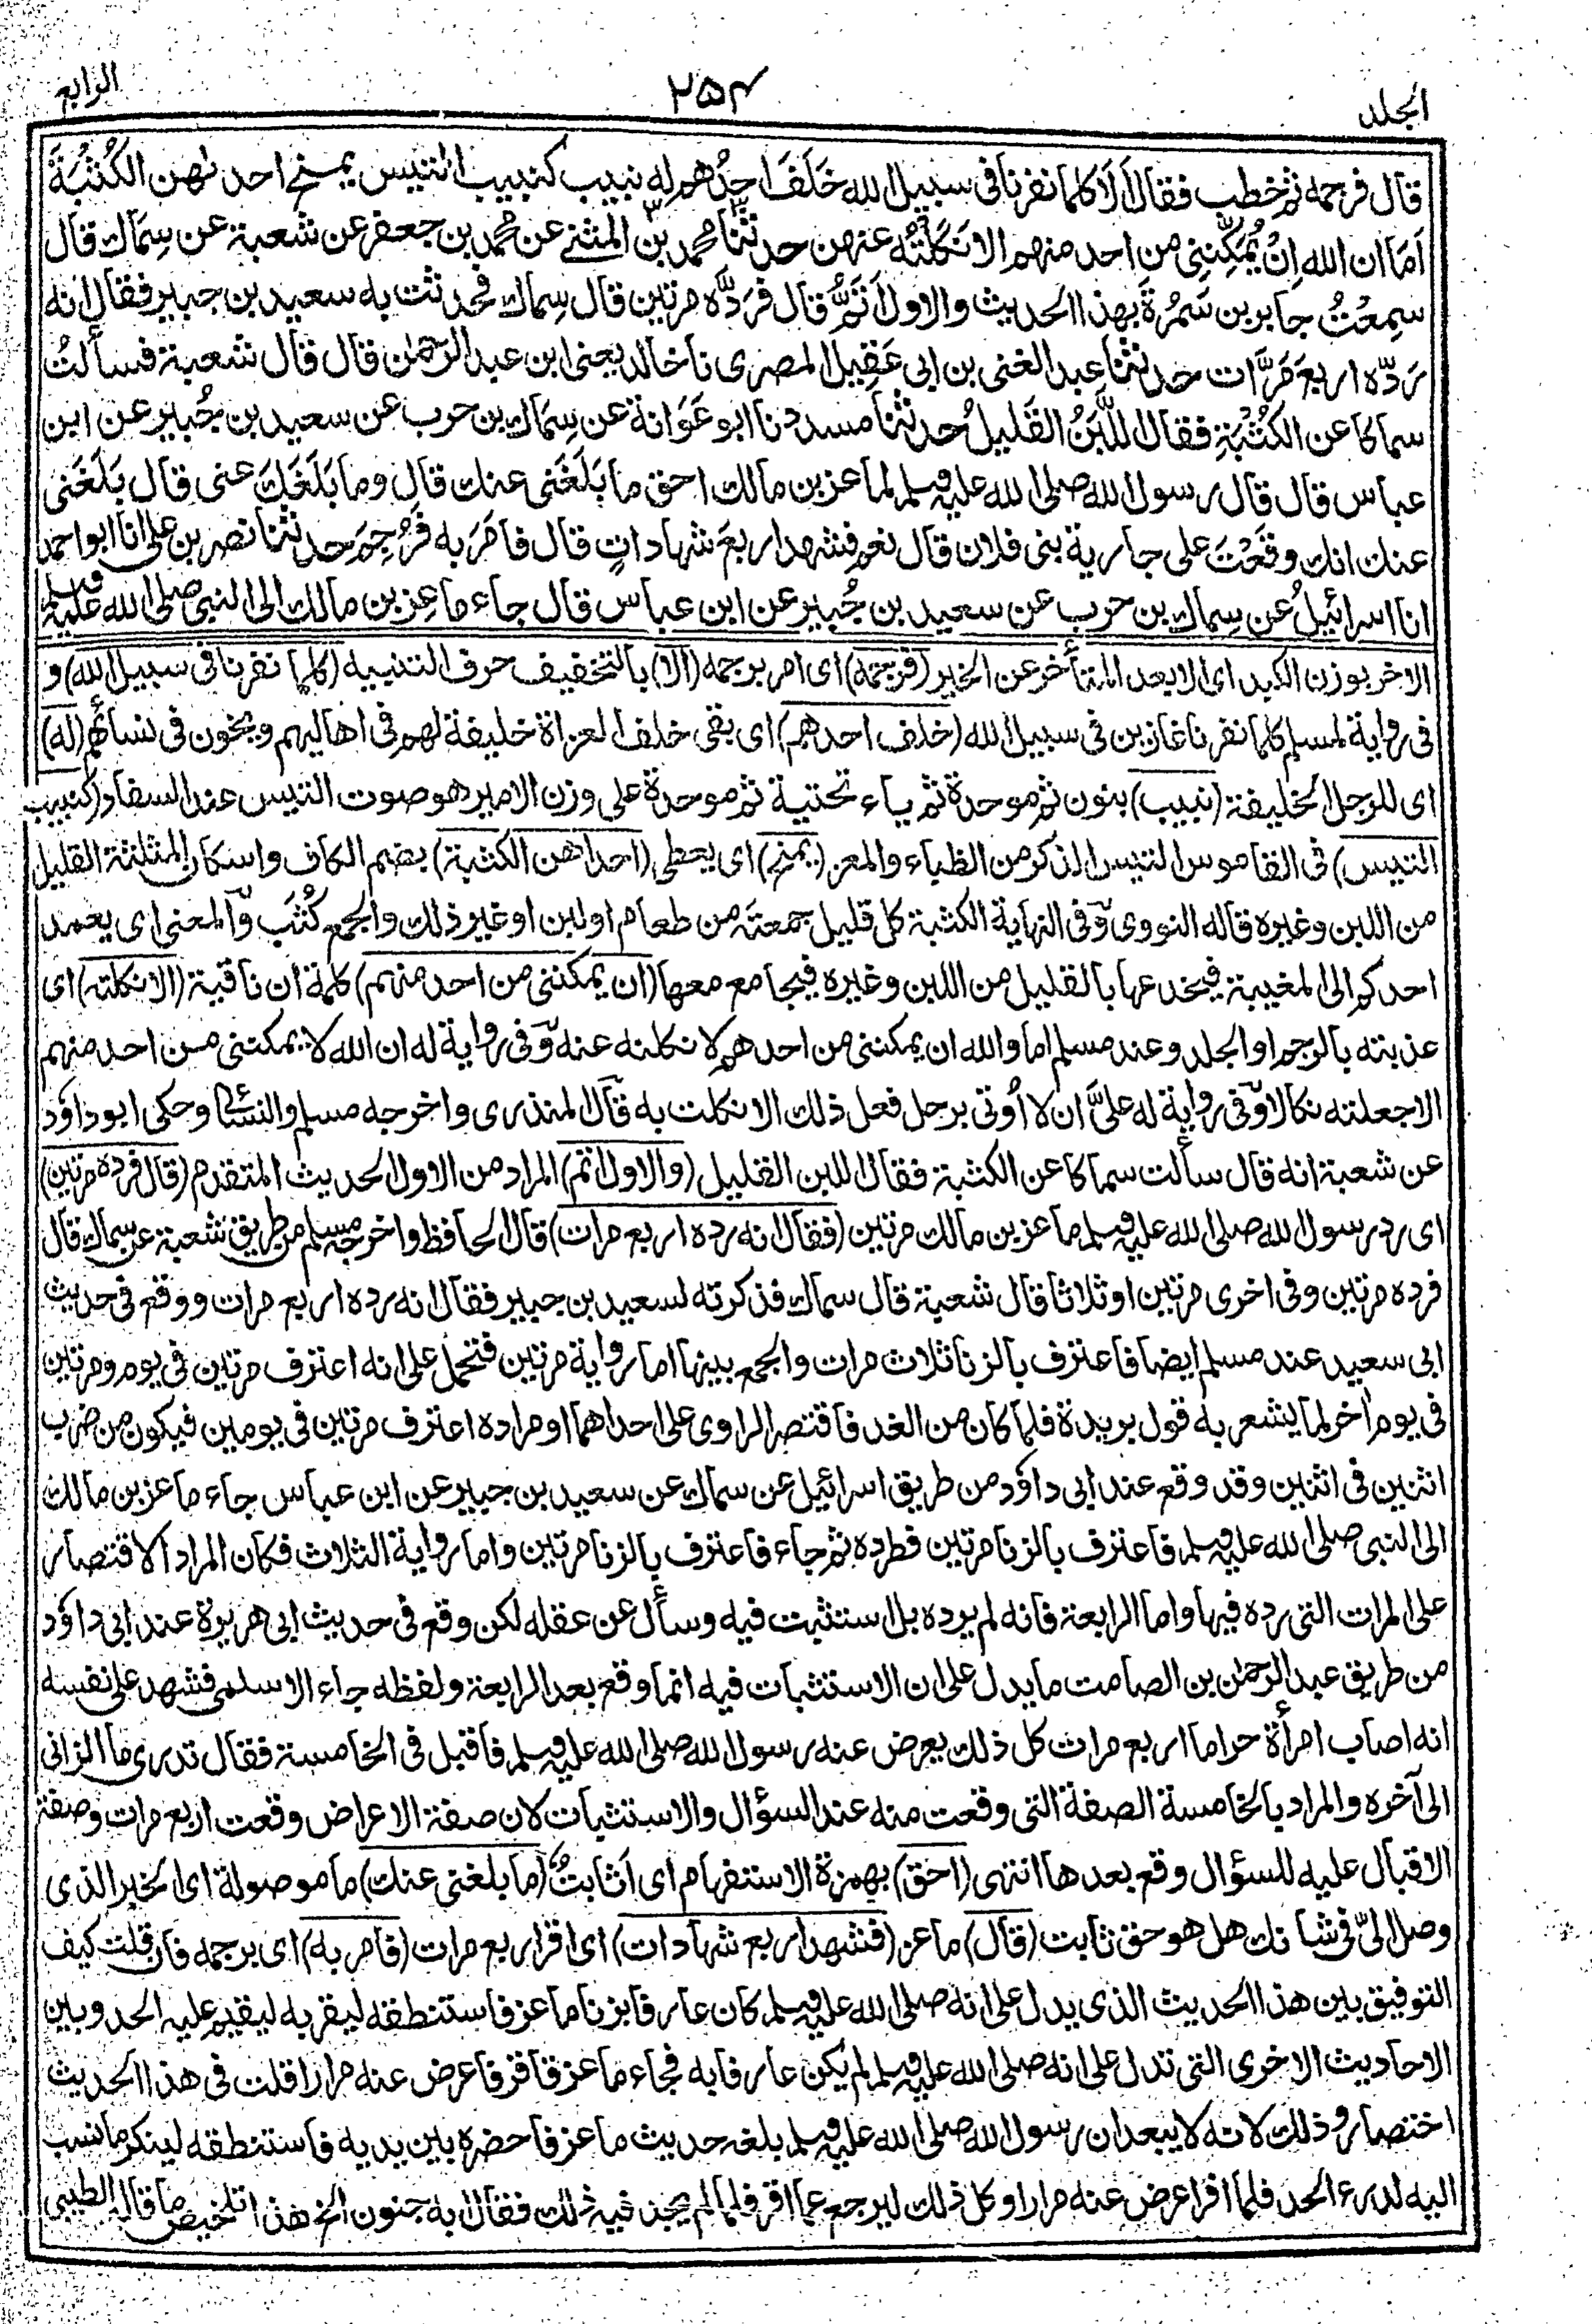 الجلد
٢٥٤
الرابع
قال فرجمه ثم خطب فقال اَلَا كلما نفرنا في سبيل الله خَلَفَ احدُهم له نبيب كنبيب التيس يمنح احدٰهن الكُثْبَةَ
اَمَا ان الله اِنْ يُمَكِّنِّي من احد منهم الا نَكَلْتُه عنهن حدثنا محمد بن المثنى عن محمد بن جعفر عن شعبة عن سِمَاك قال
سمعتُ جابر بن سَمُرةَ بهذا الحديث والاول اَتَمُّ قال فَرَدَّه مرتين قال سِماك فحدثت به سعيد بن جبير فقال انه
ردّه اربعَ مَرَّات حدثنا عبد الغني بن ابي عَقِيل المصري نا خالد يعني ابن عبد الرحمٰن قال قال شعبة فسألتُ
سماكا عن الكُثْبَةِ فقال اللَّبَنُ القَليلُ حدثنا مسدد نا ابو عَوَانة عن سِمَاك بن حرب عن سعيد بن جُبير عن ابن
عباس قال قال رسول الله صلى الله عليه وسلم لماعز بن مالك احق ما بَلَغَنِي عنك قال وما بَلَغَكَ عني قال بَلَغَني
عنك انك وقَعْتَ على جارية بني فلان قال نعم فشهد اربعَ شهاداتٍ قال فاَمَرَ به فَرُجِمَ حدثنا نصر بن علي انا ابو احمد
انا اسرائيلُ عن سِماك بن حرب عن سعيد بن جُبير عن ابن عباس قال جاء ماعِز بن مالك الى النبي صلى الله عليه وسلم
الاخر بوزن الكبد اى الابعد المتأخر عن الخير (فرجمه) اى امر برجمه (الا) بالتخفيف حرف التنبيه (كلما نفرنا في سبيل الله) و
في رواية لمسلم كلما نفرنا غازين في سبيل الله (خلف احدهم) اى بقى خلف الغزاة خليفة لهم في اهاليهم ويخون في نسائهم (له)
اى للرجل الخليفة (نبيب) بنون ثم موحدة ثم ياء تحتية ثم موحدة على وزن الامير هو صوت التيس عند السفاد (كنبيب
التيس) في القاموس التيس الذكر من الظباء والمعز (يمنح) اى يعطي (احداهن الكثبة) بضم الكاف واسكان المثلثة القليل
من اللبن وغيره قاله النووي وفي النهاية الكثبة كل قليل جمعته من طعام او لبن او غير ذلك والجمع كُثَب والمعنى اى يعمد
احدكم الى المغيبة فيخدعها بالقليل من اللبن وغيره فيجامع معها (ان يمكنني من احد منهم) كلمة ان نافية (الا نكلته) اى
عذبته بالرجم او الجلد وعند مسلم اما والله ان يمكنني من احدهم لانكلنه عنه وفي رواية له ان الله لا يمكنني من احد منهم
الا جعلته نكالا وفي رواية له علىّ ان لا اُوتى برجل فعل ذلك الا نكلت به قال المنذري واخرجه مسلم والنسائي وحكى ابو داؤد
عن شعبة انه قال سألت سماكا عن الكثبة فقال اللبن القليل (والاول اتم) المراد من الاول الحديث المتقدم (قال فرده مرتين)
اى رد رسول الله صلى الله عليه وسلم ماعز بن مالك مرتين (فقال انه رده اربع مرات) قال الحافظ واخرجه مسلم من طريق شعبة عن سماك قال
فرده مرتين وفي اخرى مرتين او ثلاثا قال شعبة قال سماك فذكرته لسعيد بن جبير فقال انه رده اربع مرات ووقع في حديث
ابي سعيد عند مسلم ايضا فاعترف بالزنا ثلاث مرات والجمع بينها اما رواية مرتين فتحمل على انه اعترف مرتين في يوم ومرتين
في يوم آخر لما يشعر به قول بريدة فلما كان من الغد فاقتصر الراوي على احداهما او مراده اعترف مرتين في يومين فيكون من ضرب
اثنين في اثنين وقد وقع عند ابي داؤد من طريق اسرائيل عن سماك عن سعيد بن جبير عن ابن عباس جاء ماعز بن مالك
الى النبي صلى الله عليه وسلم فاعترف بالزنا مرتين فطرده ثم جاء فاعترف بالزنا مرتين واما رواية الثلاث فكان المراد الاقتصار
على المرات التي رده فيها واما الرابعة فانه لم يرده بل استثبت فيه وسأل عن عقله لكن وقع في حديث ابي هريرة عند ابي داؤد
من طريق عبد الرحمٰن بن الصامت ما يدل على ان الاستثبات فيه انما وقع بعد الرابعة ولفظه جاء الاسلمي فشهد على نفسه
انه اصاب امرأة حراما اربع مرات كل ذلك يعرض عنه رسول الله صلى الله عليه وسلم فاقبل في الخامسة فقال تدري ما الزاني
الى آخره والمراد بالخامسة الصفة التي وقعت منه عند السؤال والاستثبات لان صفة الاعراض وقعت اربع مرات وصفة
الاقبال عليه للسؤال وقع بعدها انتهى (احق) بهمزة الاستفهام اى أثابتٌ (ما بلغني عنك) ما موصولة اى الخبر الذي
وصل الىّ في شانك هل هو حق ثابت (قال) ماعز (فشهد اربع شهادات) اى اقر اربع مرات (فامر به) اى برجمه فان قلت كيف
التوفيق بين هذا الحديث الذي يدل على انه صلى الله عليه وسلم كان عارفا بزنا ماعز فاستنطقه ليقر به ليقيم عليه الحد وبين
الاحاديث الاخرى التي تدل على انه صلى الله عليه وسلم لم يكن عارفا به فجاء ماعز فاقر فاعرض عنه مرارا قلت في هذا الحديث
اختصار وذلك لانه لا يبعد ان رسول الله صلى الله عليه وسلم بلغه حديث ماعز فاحضره بين يديه فاستنطقه لينكر ما نسب
اليه لدرء الحد فلما اقر اعرض عنه مرارا وكل ذلك ليرجع عما اقر فلما لم يجد فيه ذلك فقال ابه جنون الخ هذا تلخيص ما قاله الطيبي